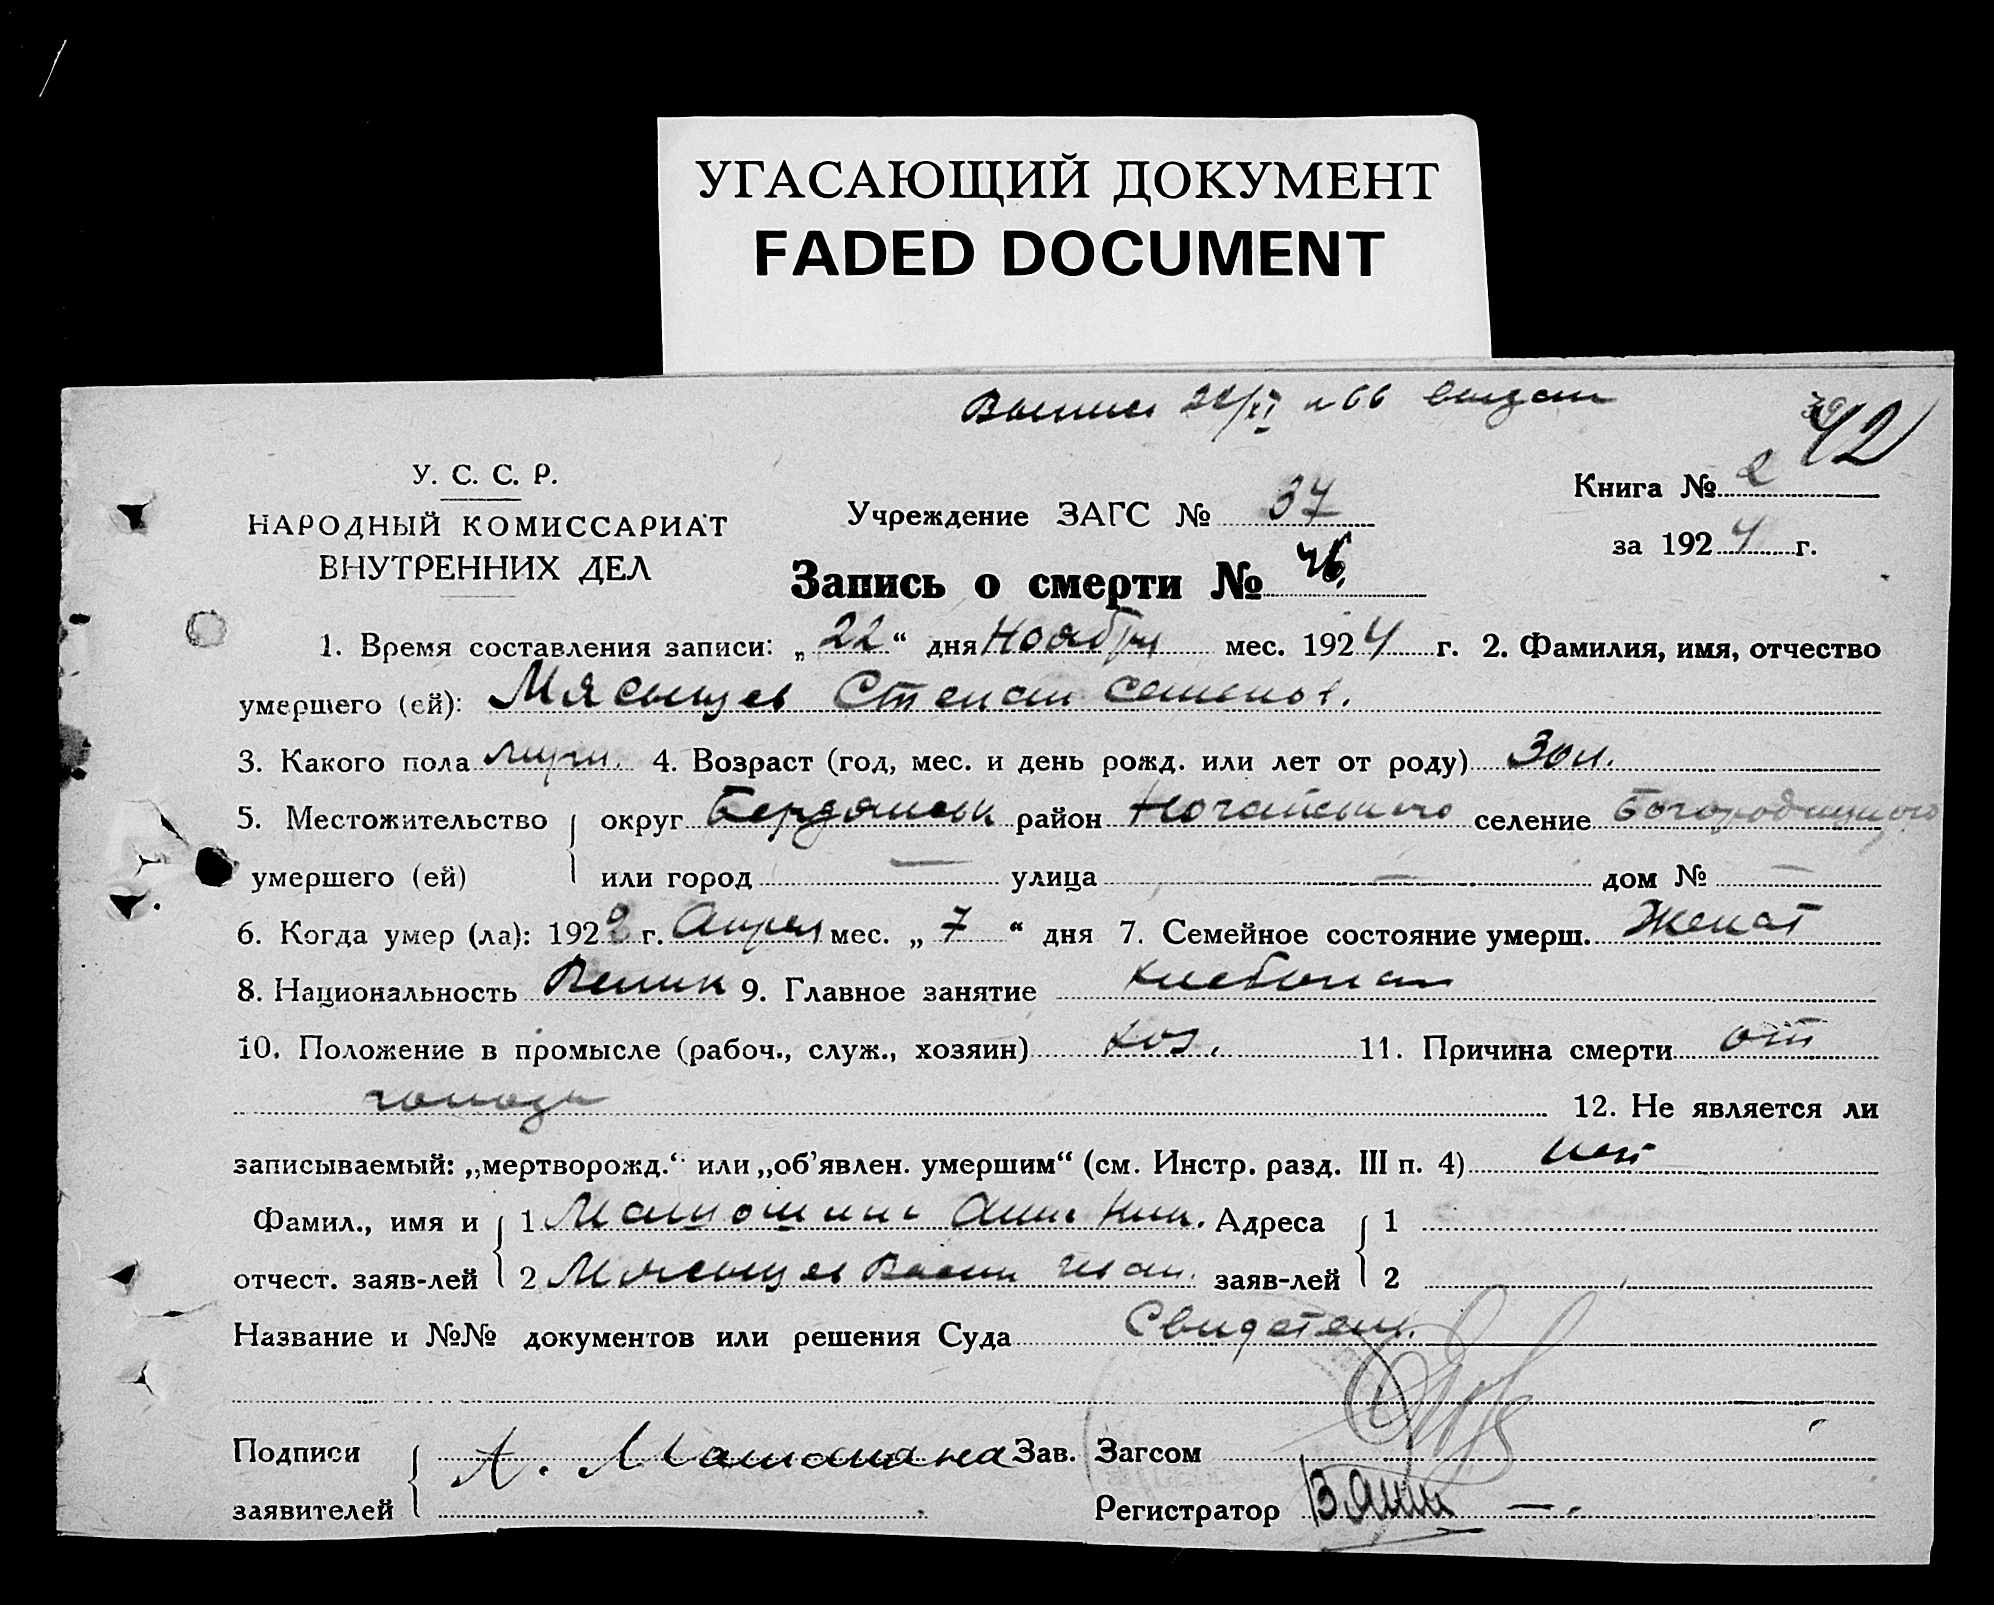 УГАСАЮЩИЙ ДОКУМЕНТ
FADED DOCUMENT
У. С. С. Р.
НАРОДНЫЙ КОМИССАРИАТ
ВНУТРЕННИХ ДЕЛ
Учреждение ЗАГС № 37
Книга № 2 42
за 1924 г.
Запись о смерти №
1. Время составления записи: „22“ дня Ноября мес. 1924 г. 2. Фамилия, имя, отчество
умершего (ей): Мясищев Степан Семенов.
3. Какого пола 4. Возраст (год, мес. и день рожд. или лет от роду) 30 л.
5. Местожительство округ Бердянск район Ногайского селение Богородицкого
умершего (ей) или город — улица — дом № —
6. Когда умер (ла): 1922 г. Апреля мес. „7“ дня 7. Семейное состояние умерш. Женат
8. Национальность 9. Главное занятие хлебопаш
10. Положение в промысле (рабоч., служ., хозяин) хоз. 11. Причина смерти от
голода 12. Не является ли
записываемый: „мертворожд.“ или „об’явлен. умершим“ (см. Инстр. разд. III п. 4) нет
Фамил., имя и 1 Анна Адреса 1
отчест. заяв-лей 2 Мясищев Васил заяв-лей 2
Название и №№ документов или решения Суда Свидетели.
Подписи А. Зав. Загсом
заявителей Регистратор